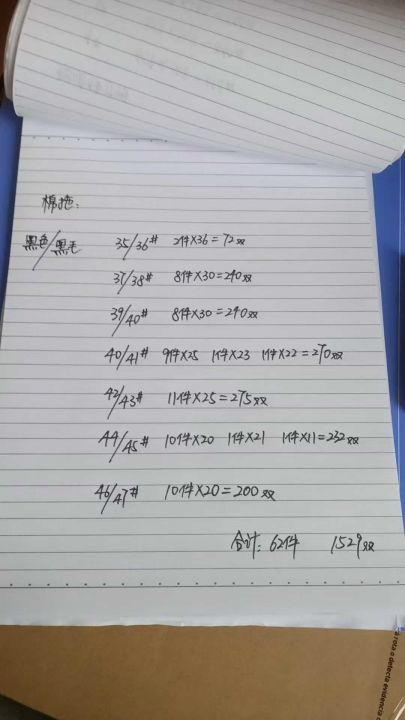 棉拖:
黑色/黑毛 35/36# 2件×36=72双
37/38# 8件×30=240双
39/40# 8件×30=240双
40/41# 9件×25 1件×23 1件×22=270双
42/43# 11件×25=275双
44/45# 10件×20 1件×21 1件×11=232双
46/47# 10件×20=200双
合计: 62件 1529双
a rota o defecta evidencia